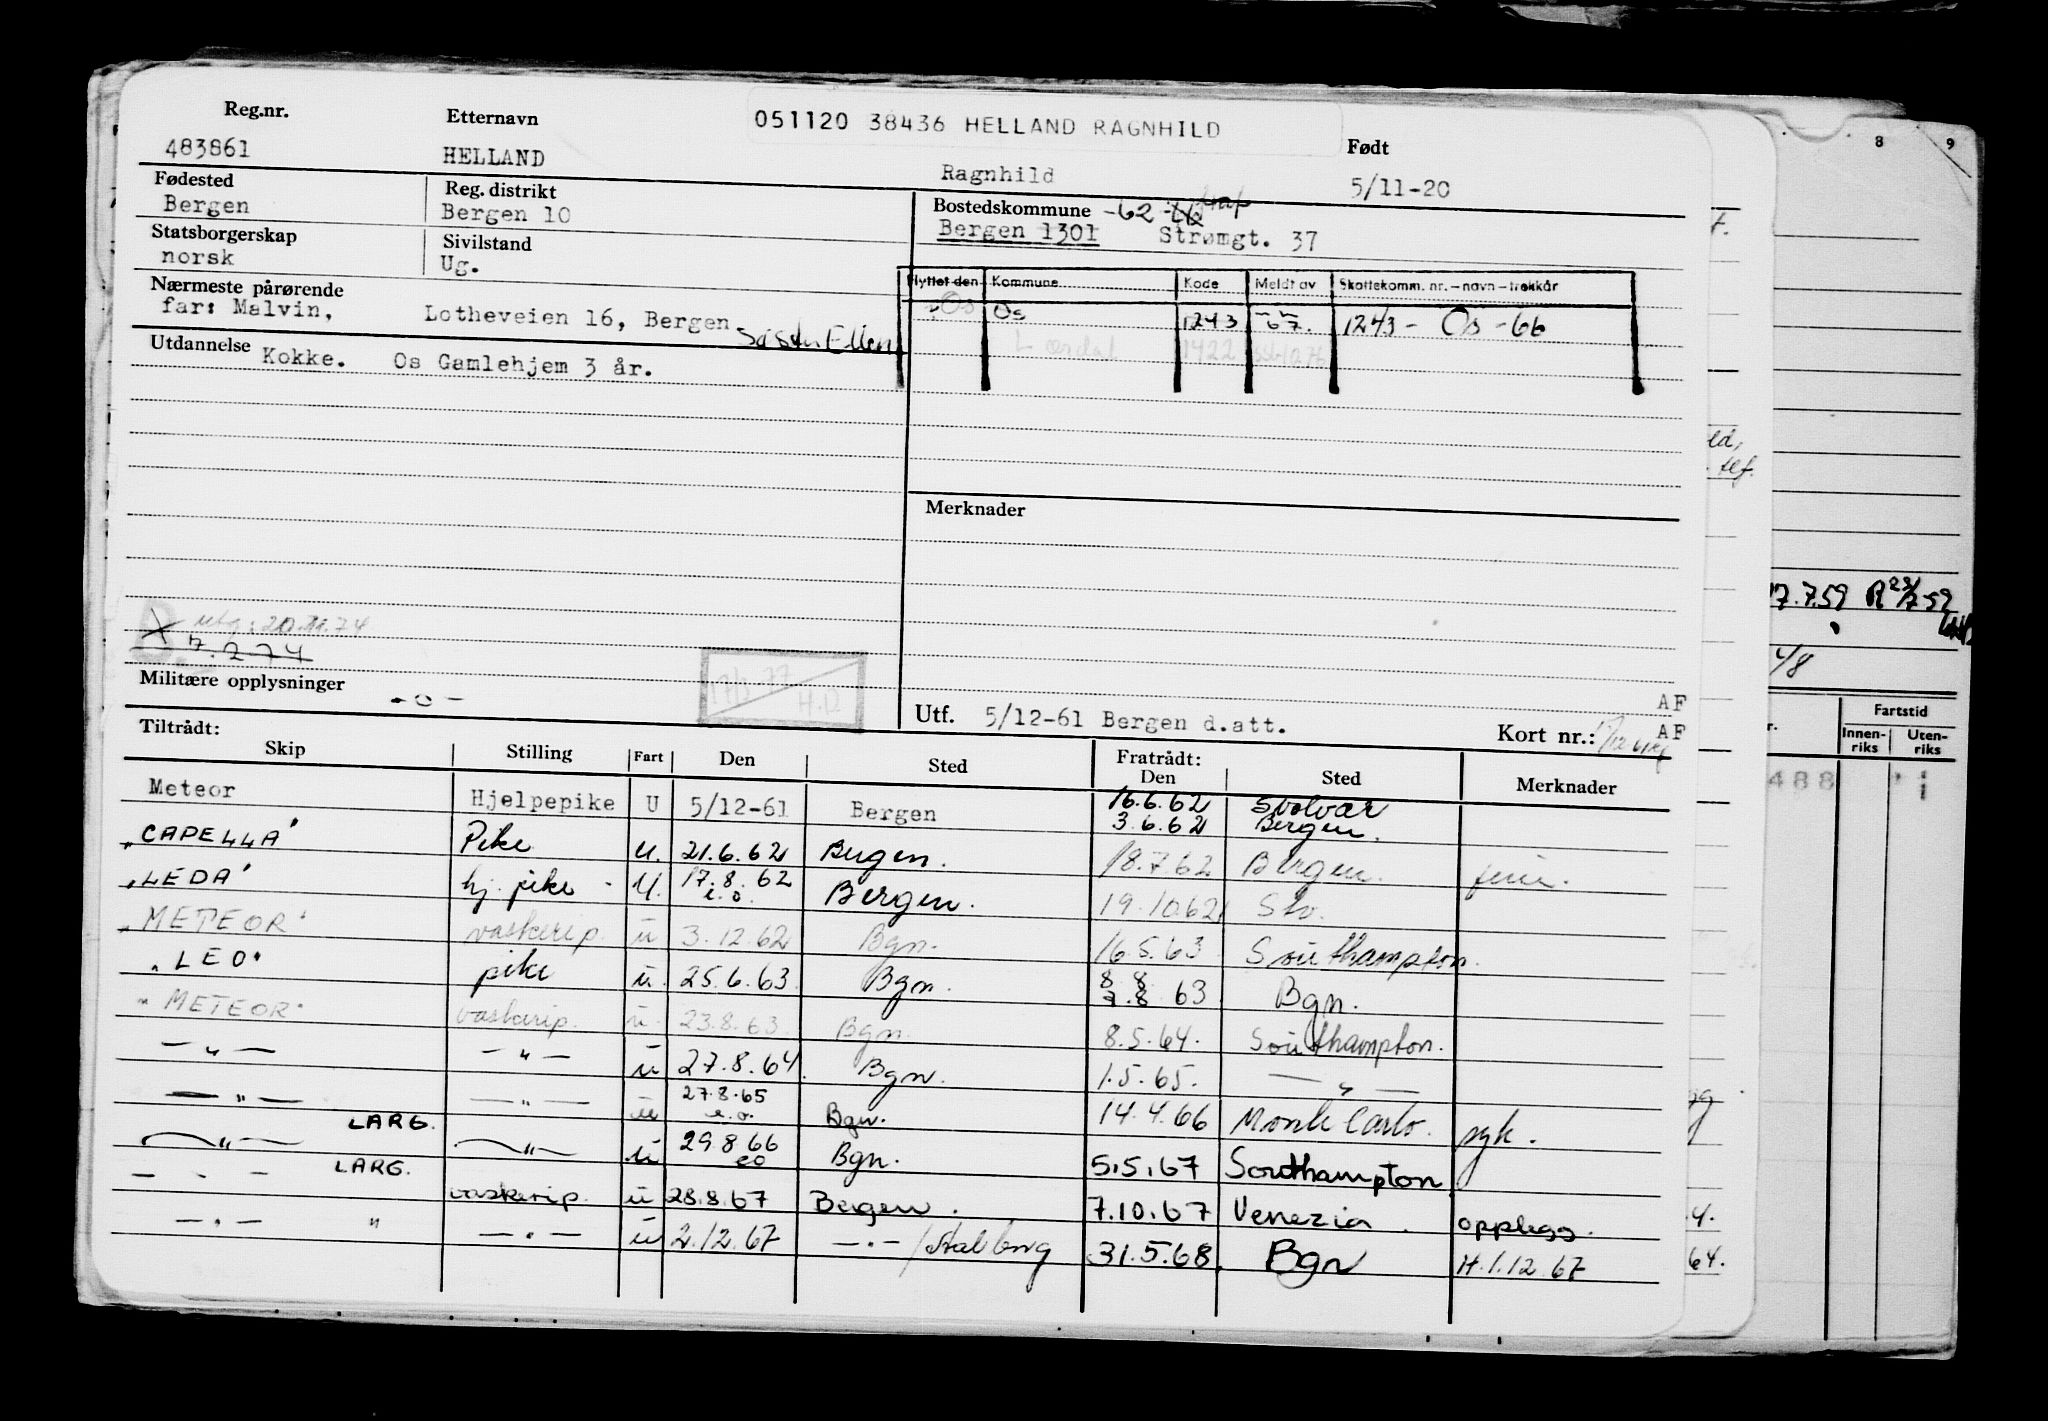 051120 38436 HELLAND RAGNHILD
Reg.nr. Etternavn Født
483861 HELLAND Ragnhild 5/11-20
Fødested Reg. distrikt Bostedskommune -62
Bergen Bergen 10 Bergen 1301 Strømgt. 37
Statsborgerskap Sivilstand
norsk Ug.
Flyttet den Kommune Kode Meldt av Skattekomm. nr. – navn – trekkår
Os Os 1243 67. 1243 - Os - 66
Lærdal 1422
Nærmeste pårørende
far: Malvin, Lotheveien 16, Bergen Søster Ellen
Utdannelse Kokke. Os Gamlehjem 3 år.
Merknader
utg: 20.11.74
7.2-74
17/3 77
H.D
Militære opplysninger -o-
AF
Utf. 5/12-61 Bergen d.att. Kort nr.: AF
Tiltrådt: Fratrådt:
Skip Stilling Fart Den Sted Den Sted Merknader
Meteor Hjelpepike U 5/12-61 Bergen 16.6.62 Svolvær
3.6.62 Bergen.
"CAPELLA" Pike U. 21.6.62 Bergen. 18.7.62 Bergen. ferie.
"LEDA" hj. pike U. 17.8.62 e.o. Bergen. 19.10.62 Stv.
"METEOR" vaskerip. u 3.12.62 Bgn. 16.5.63 Southampton.
"LEO" pike u. 25.6.63 Bgn. 8 8
7.8 63 Bgn.
"METEOR" vaskerip. u. 23.8.63 Bgn. 8.5.64. Southampton.
— " — — " — u 27.8.64 Bgn. 1.5.65. — " —
— " — — " — u 27.8.65 e.o. Bgn. 14.4.66 Monte Carlo. syk.
LARG.
— " — — " — u 29.8.66 eo Bgn. 5.5.67 Southampton
LARG.
- - - vaskerip. u 28.8.67 Bergen. 7.10.67 Venezia. opplegg.
— " — " — " — u 2.12.67 — " — 31.5.68. Bgn H.1.12.67
8 9
eld,
tlf.
17.7.59 R 23/7-59
4/8
Fartstid
Innen-
riks
Uten-
riks
488
4.
64.